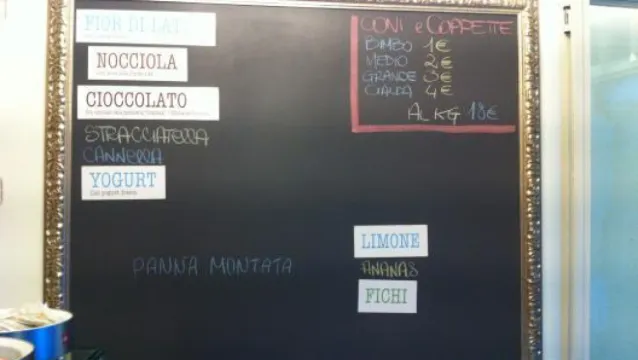 FIOR DI LATTE
NOCCIOLA
CIOCCOLATO
STRACCIATELLA
CANNELLA
YOGURT
PANNA MONTATA
CONI e COPPETTE
BIMBO 1€
MEDIO 2€
GRANDE 3€
CIALDA 4€
AL KG 18€
LIMONE
ANANAS
FICHI